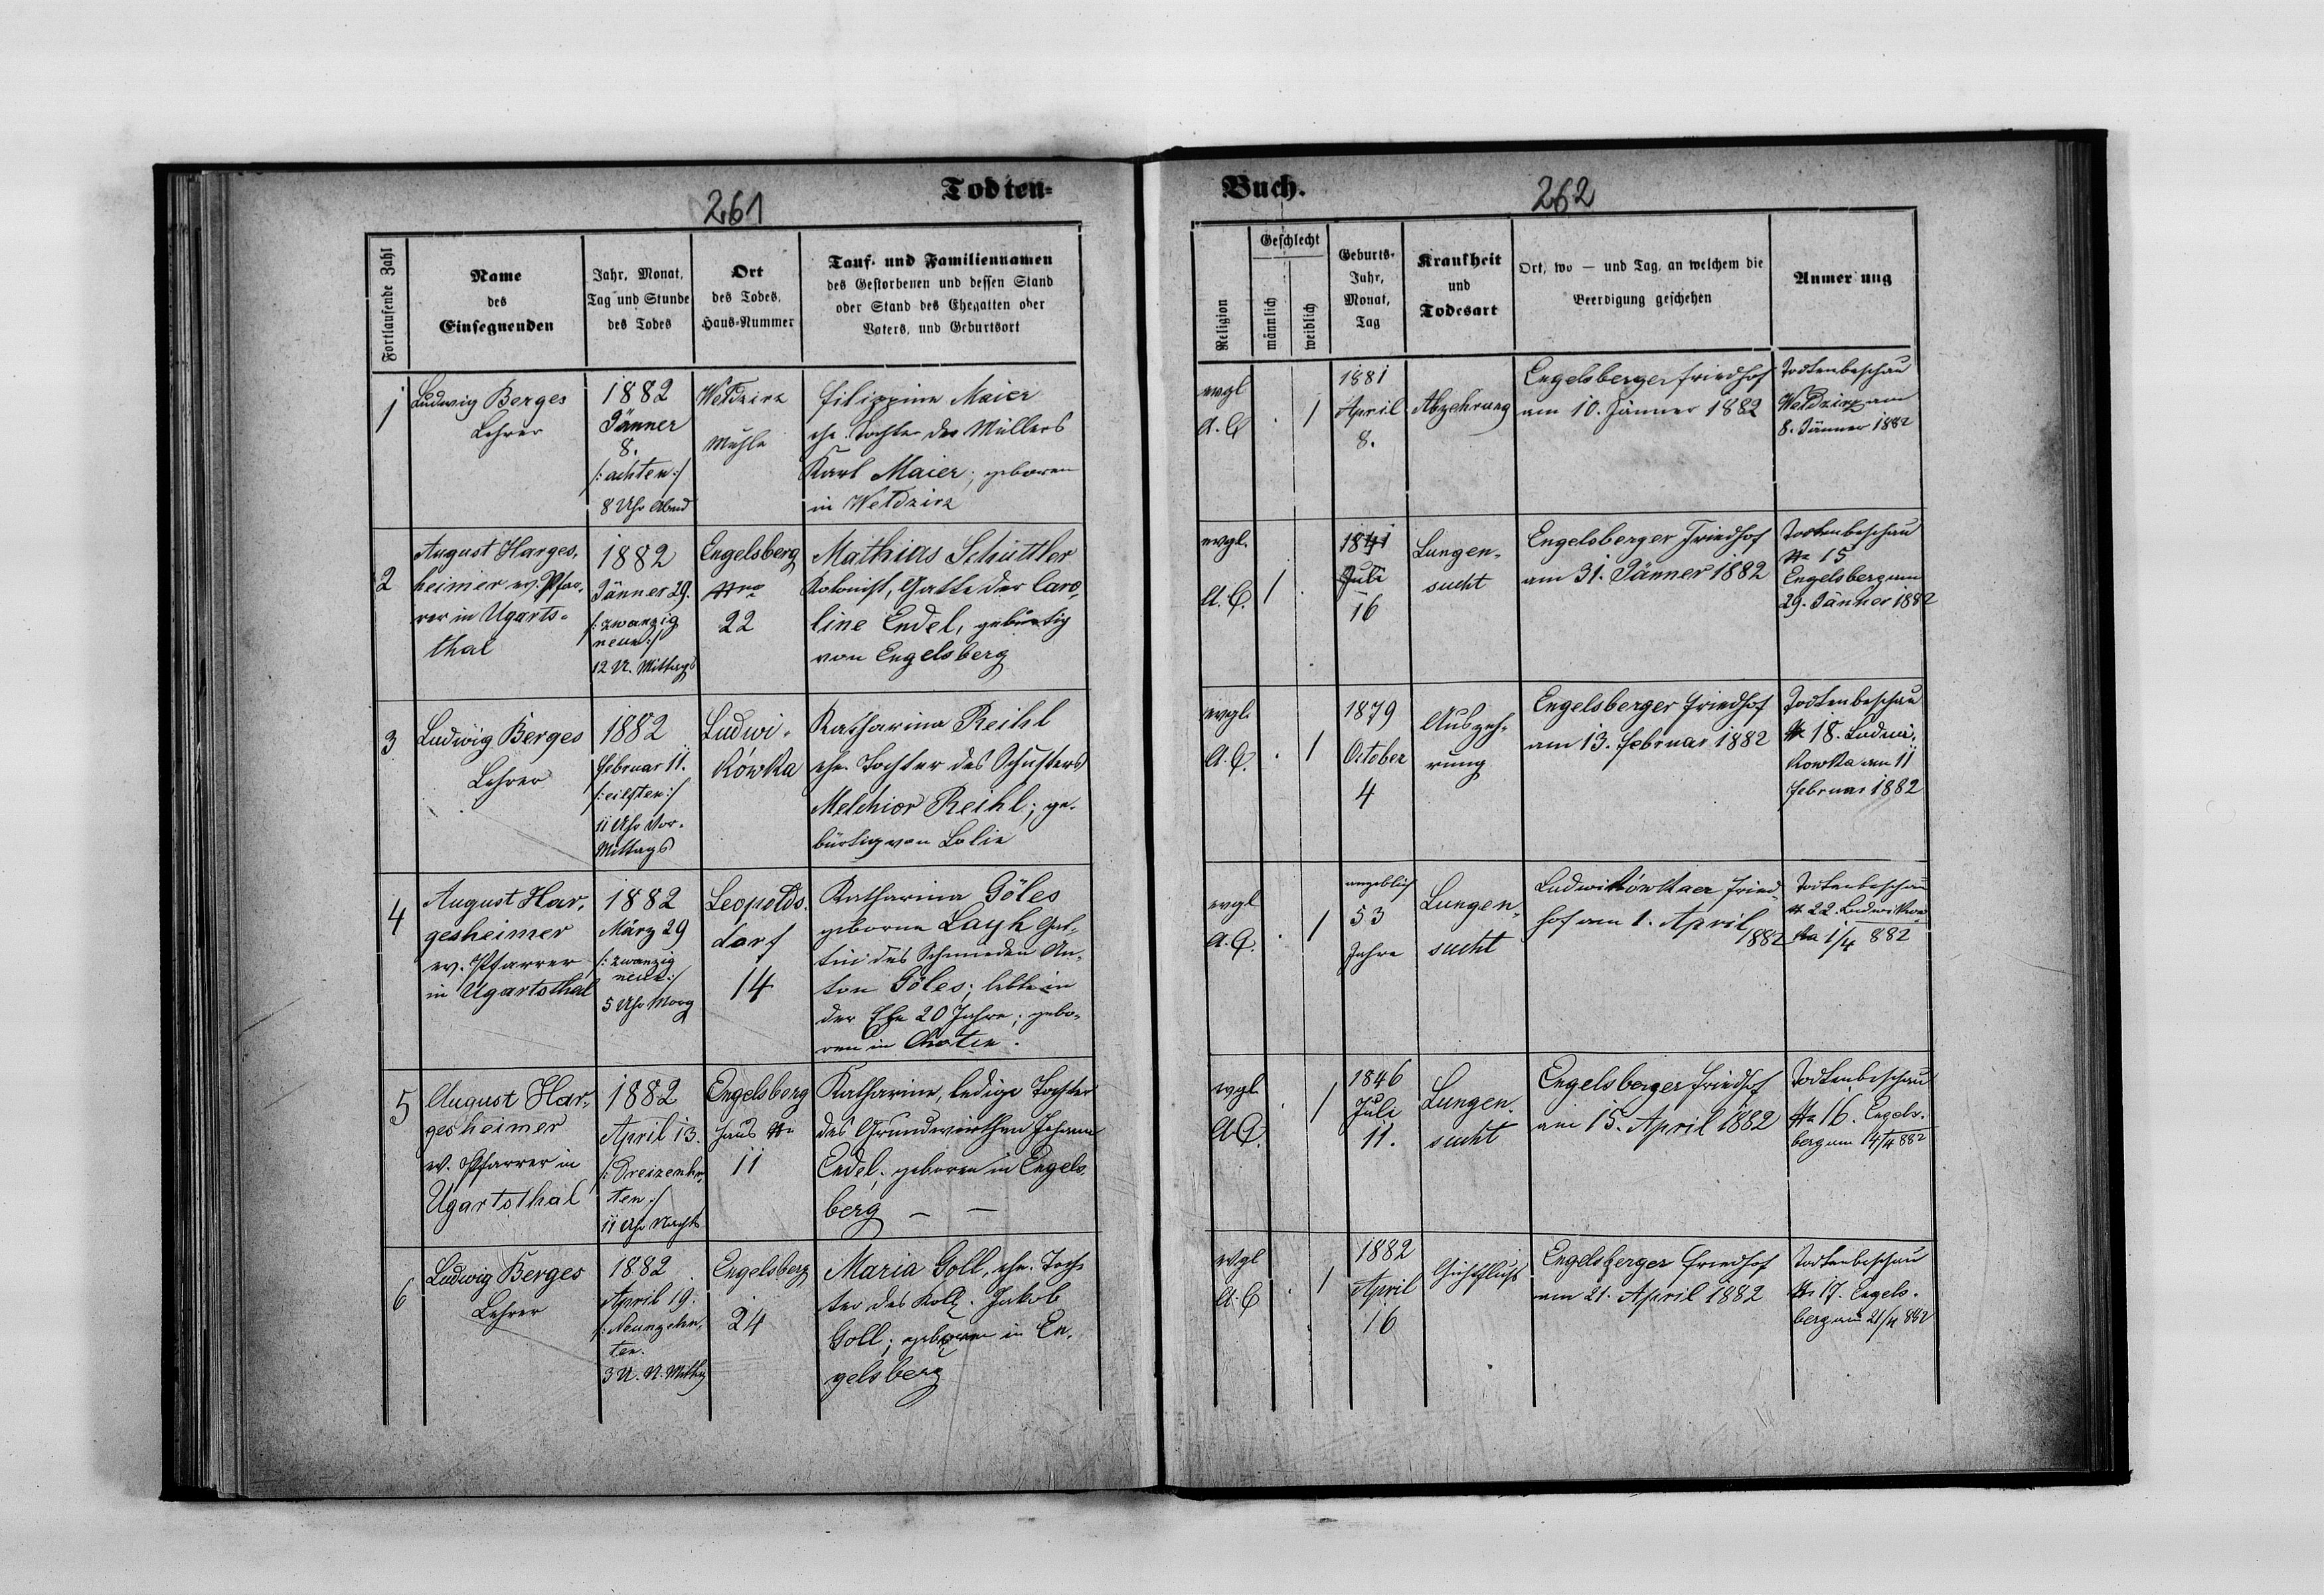 261
Todten-
Fortlaufende Zahl
Name
des
Einsegnenden
Jahr, Monat,
Tag und Stunde
des Todes
Ort
des Todes,
Haus-Nummer
Tauf- und Familiennamen
des Gestorbenen und dessen Stand
oder Stand des Ehegatten oder
Vaters, und Geburtsort
1
Ludwig Berges
Lehrer
1882
Jänner
8.
/: achten :/
8 Uhr Abend
Weldzirz
Mühle
Filippine Maier
ehe. Tochter des Müllers
Karl Maier; geboren
in Weldzirz
2
August Harges-
heimer ev. Pfar-
rer in Ugarts-
thal
1882
Jänner 29.
/: zwanzig
neun :/
12 U. Mittags
Engelsberg
Nro
22
Mathias Schüttler
Kolonist, Gatte der Caro-
line Endel, gebürtig
von Engelsberg
3
Ludwig Berges
Lehrer
1882
Februar 11.
/: eilften :/
11 Uhr Vor-
Mittags
Ludwi-
kówka
Katharina Reihl
ehe. Tochter des Schusters
Melchior Reihl; ge-
bürtig von Lolin
4
August Har-
gesheimer
ev. Pfarrer
in Ugartsthal
1882
März 29
/: zwanzig
neun :/
5 Uhr Morg
Leopolds-
dorf
14
Katharina Göles
geborne Layh Gat-
tin des Schmieden An-
ton Göles; lebte in
der Ehe 20 Jahre; gebo-
ren in
5
August Har-
gesheimer
ev. Pfarrer in
Ugartsthal
1882
April 13.
/: Dreizenhn-
ten :/
11 Uhr Nachts
Engelsberg
Haus No
11
Katharina, ledige Tochter
des Grundwirthen Johann
Endel; geboren in Engels-
berg — —
6
Ludwig Berges
Lehrer
1882
April 19.
/: Neunzehn-
ten.
3 U. N. Mittg
Engelsberg
24
Maria Goll, ehe. Toch-
ter des Kol. Jakob
Goll; geboren in En-
gelsberg
Buch.
262
Religion
Geschlecht
männlich
weiblich
Geburts-
Jahr,
Monat,
Tag
Krankheit
und
Todesart
Ort, wo — und Tag, an welchem die
Beerdigung geschehen
Anmer ung
evgl
A. C.
1
1881
April
8.
Abzehrung
Engelsberger Friedhof
am 10. Jänner 1882
Todtenbeschau
Weldzirz am
8. Jänner 1882
evgl.
A. C.
1
1841
Juli
16
Lungen-
sucht
Engelsberger Friedhof
am 31. Jänner 1882
Todtenbeschau
No 15
Engelsberg am
29. Jänner 1882
evgl.
A. C.
1
1879
October
4
Auszeh-
rung
Engelsberger Friedhof
am 13. Februar 1882
Todtenbeschau
No 18. Ludwi-
kowka am 11
Februar 1882
evgl
A. C.
1
angeblich
53
Jahre
Lungen-
sucht
Ludwikówkaer Fried-
hof am 1. April
1882
Todtenbeschau
No 22. Ludwikow
ka 1/4 882
evgl.
A C.
1
1846
Juli
11.
Lungen-
sucht
Engelsberger Friedhof
am 15. April 1882
Todtenbeschau
No 16. Engels-
berg am 14/4 882
evgl
A. C
1
1882
April
16
Engelsberger Friedhof
am 21. April 1882
Todtenbeschau
No 17. Engels-
berg am 21/4 882